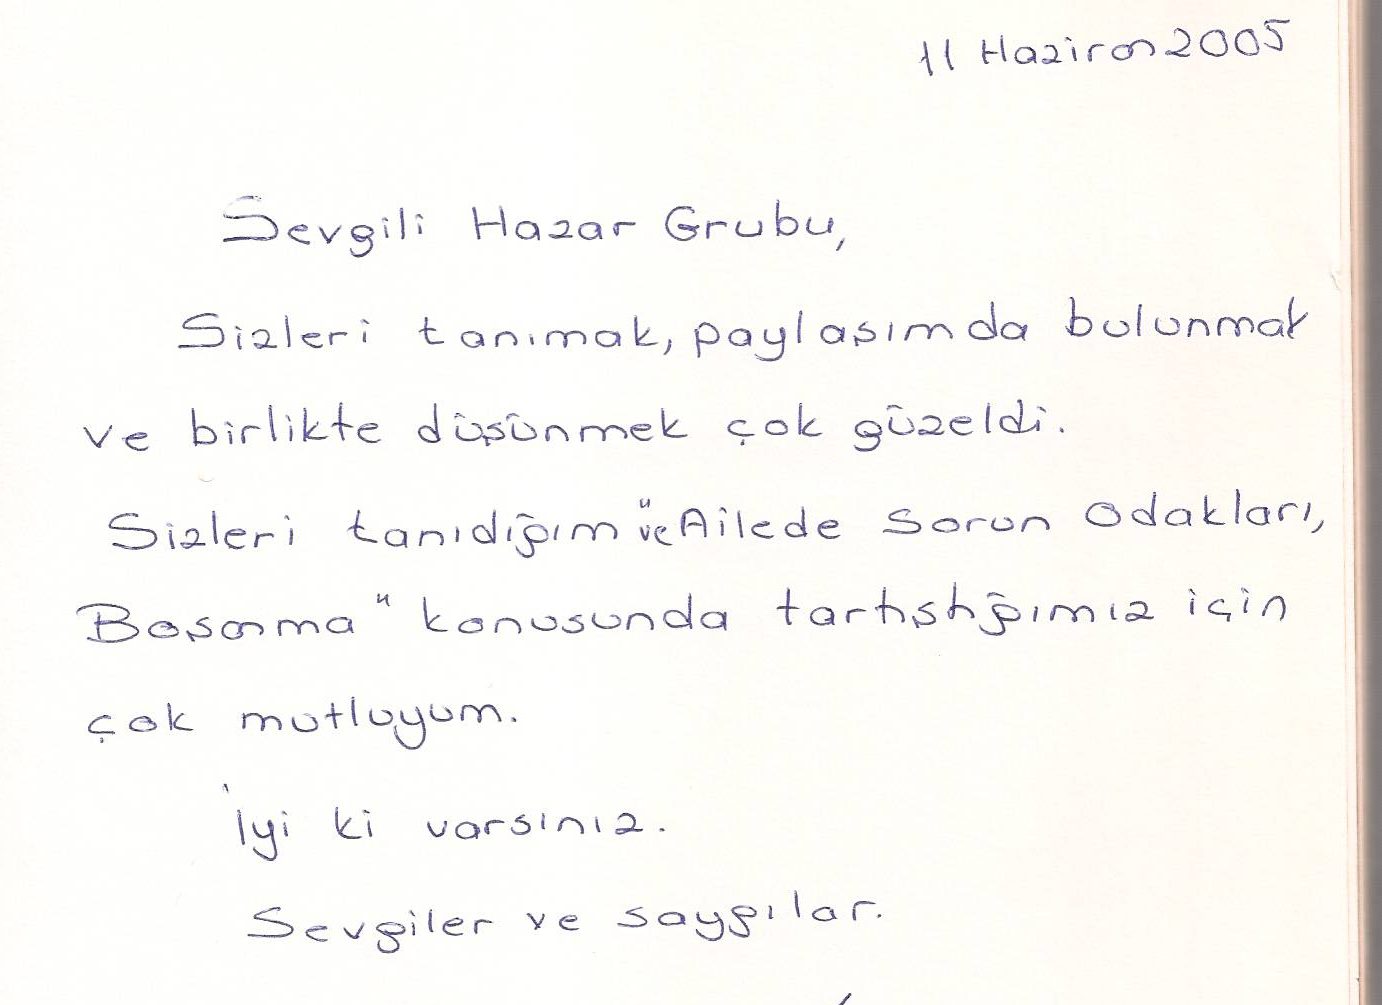 11 Haziran 2005
Sevgili Hazar Grubu,
Sizleri tanımak, paylaşımda bulunmak
ve birlikte düşünmek çok güzeldi.
Sizleri tanıdığım ve "Ailede Sorun Odakları,
Boşanma" konusunda tartıştığımız için
çok mutluyum.
İyi ki varsınız.
Sevgiler ve saygılar.